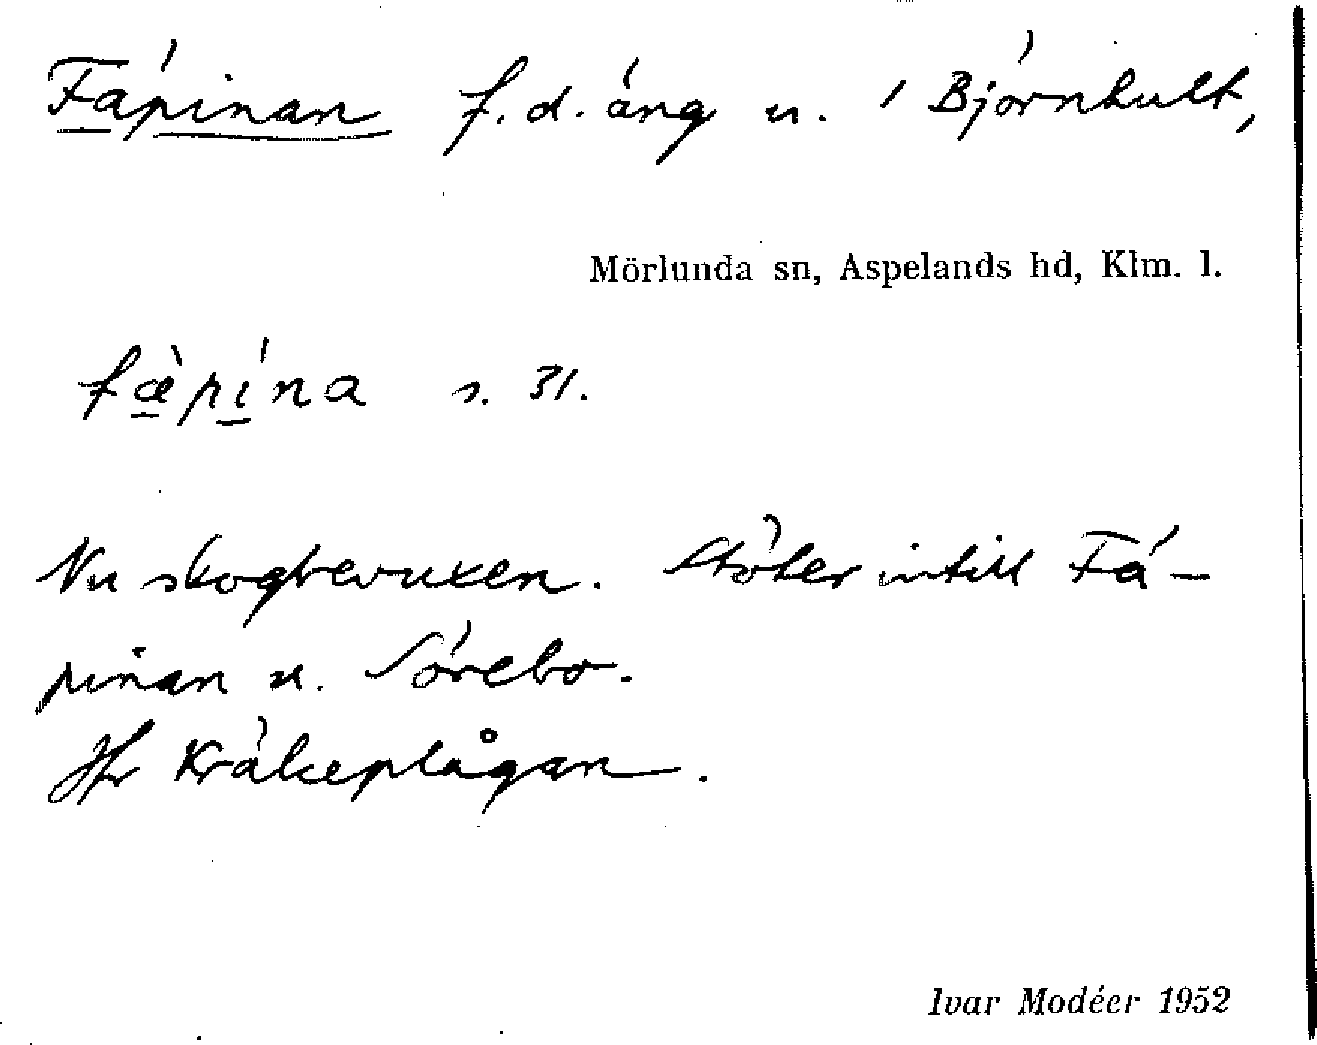 Fäpinan f. d. äng u. 1 Björnhult,
Mörlunda sn, Aspelands hd, Klm. l.
fæ̀pína s. 31.
Nu skogbevuxen. Stöter intill Fä-
pinan u. Sörebo.
Jfr Kräkeplågan.
Ivar Modéer 1952